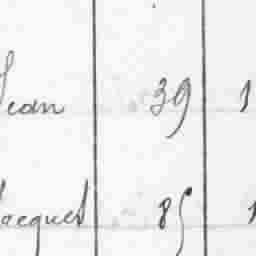 Jean 39 1
Jacques 85 1